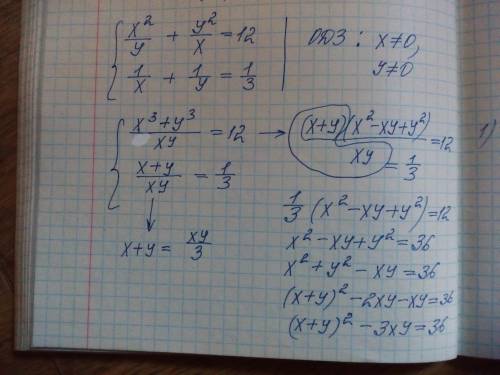 { x²/y + y²/x = 12 | ОДЗ: x≠0,
{ 1/x + 1/y = 1/3 | y≠0
{ (x³+y³)/(xy) = 12 → (x+y)(x²-xy+y²)/(xy) = 12
{ (x+y)/(xy) = 1/3
= 1/3
↓
x+y = xy/3
1/3 (x²-xy+y²) = 12
x²-xy+y² = 36
x²+y²-xy = 36
(x+y)²-2xy-xy = 36
(x+y)²-3xy = 36
1)